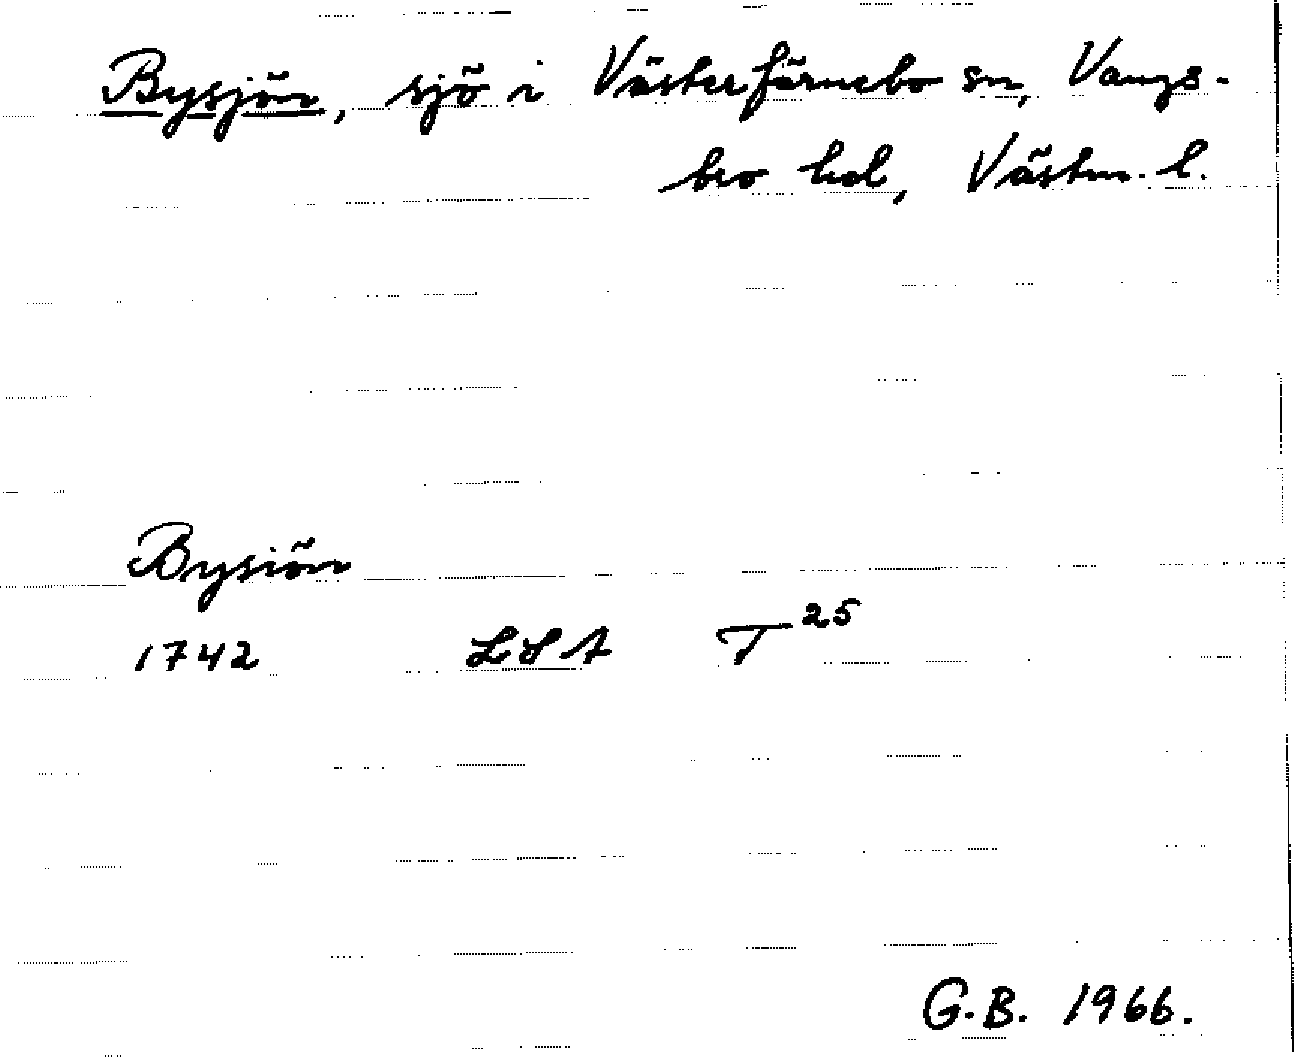 Bysjön, sjö i Västerfärnebo sn, Vangs-
bro hd, Västm. l.
Bysiön
1742 LSA T 25
G.B. 1966.